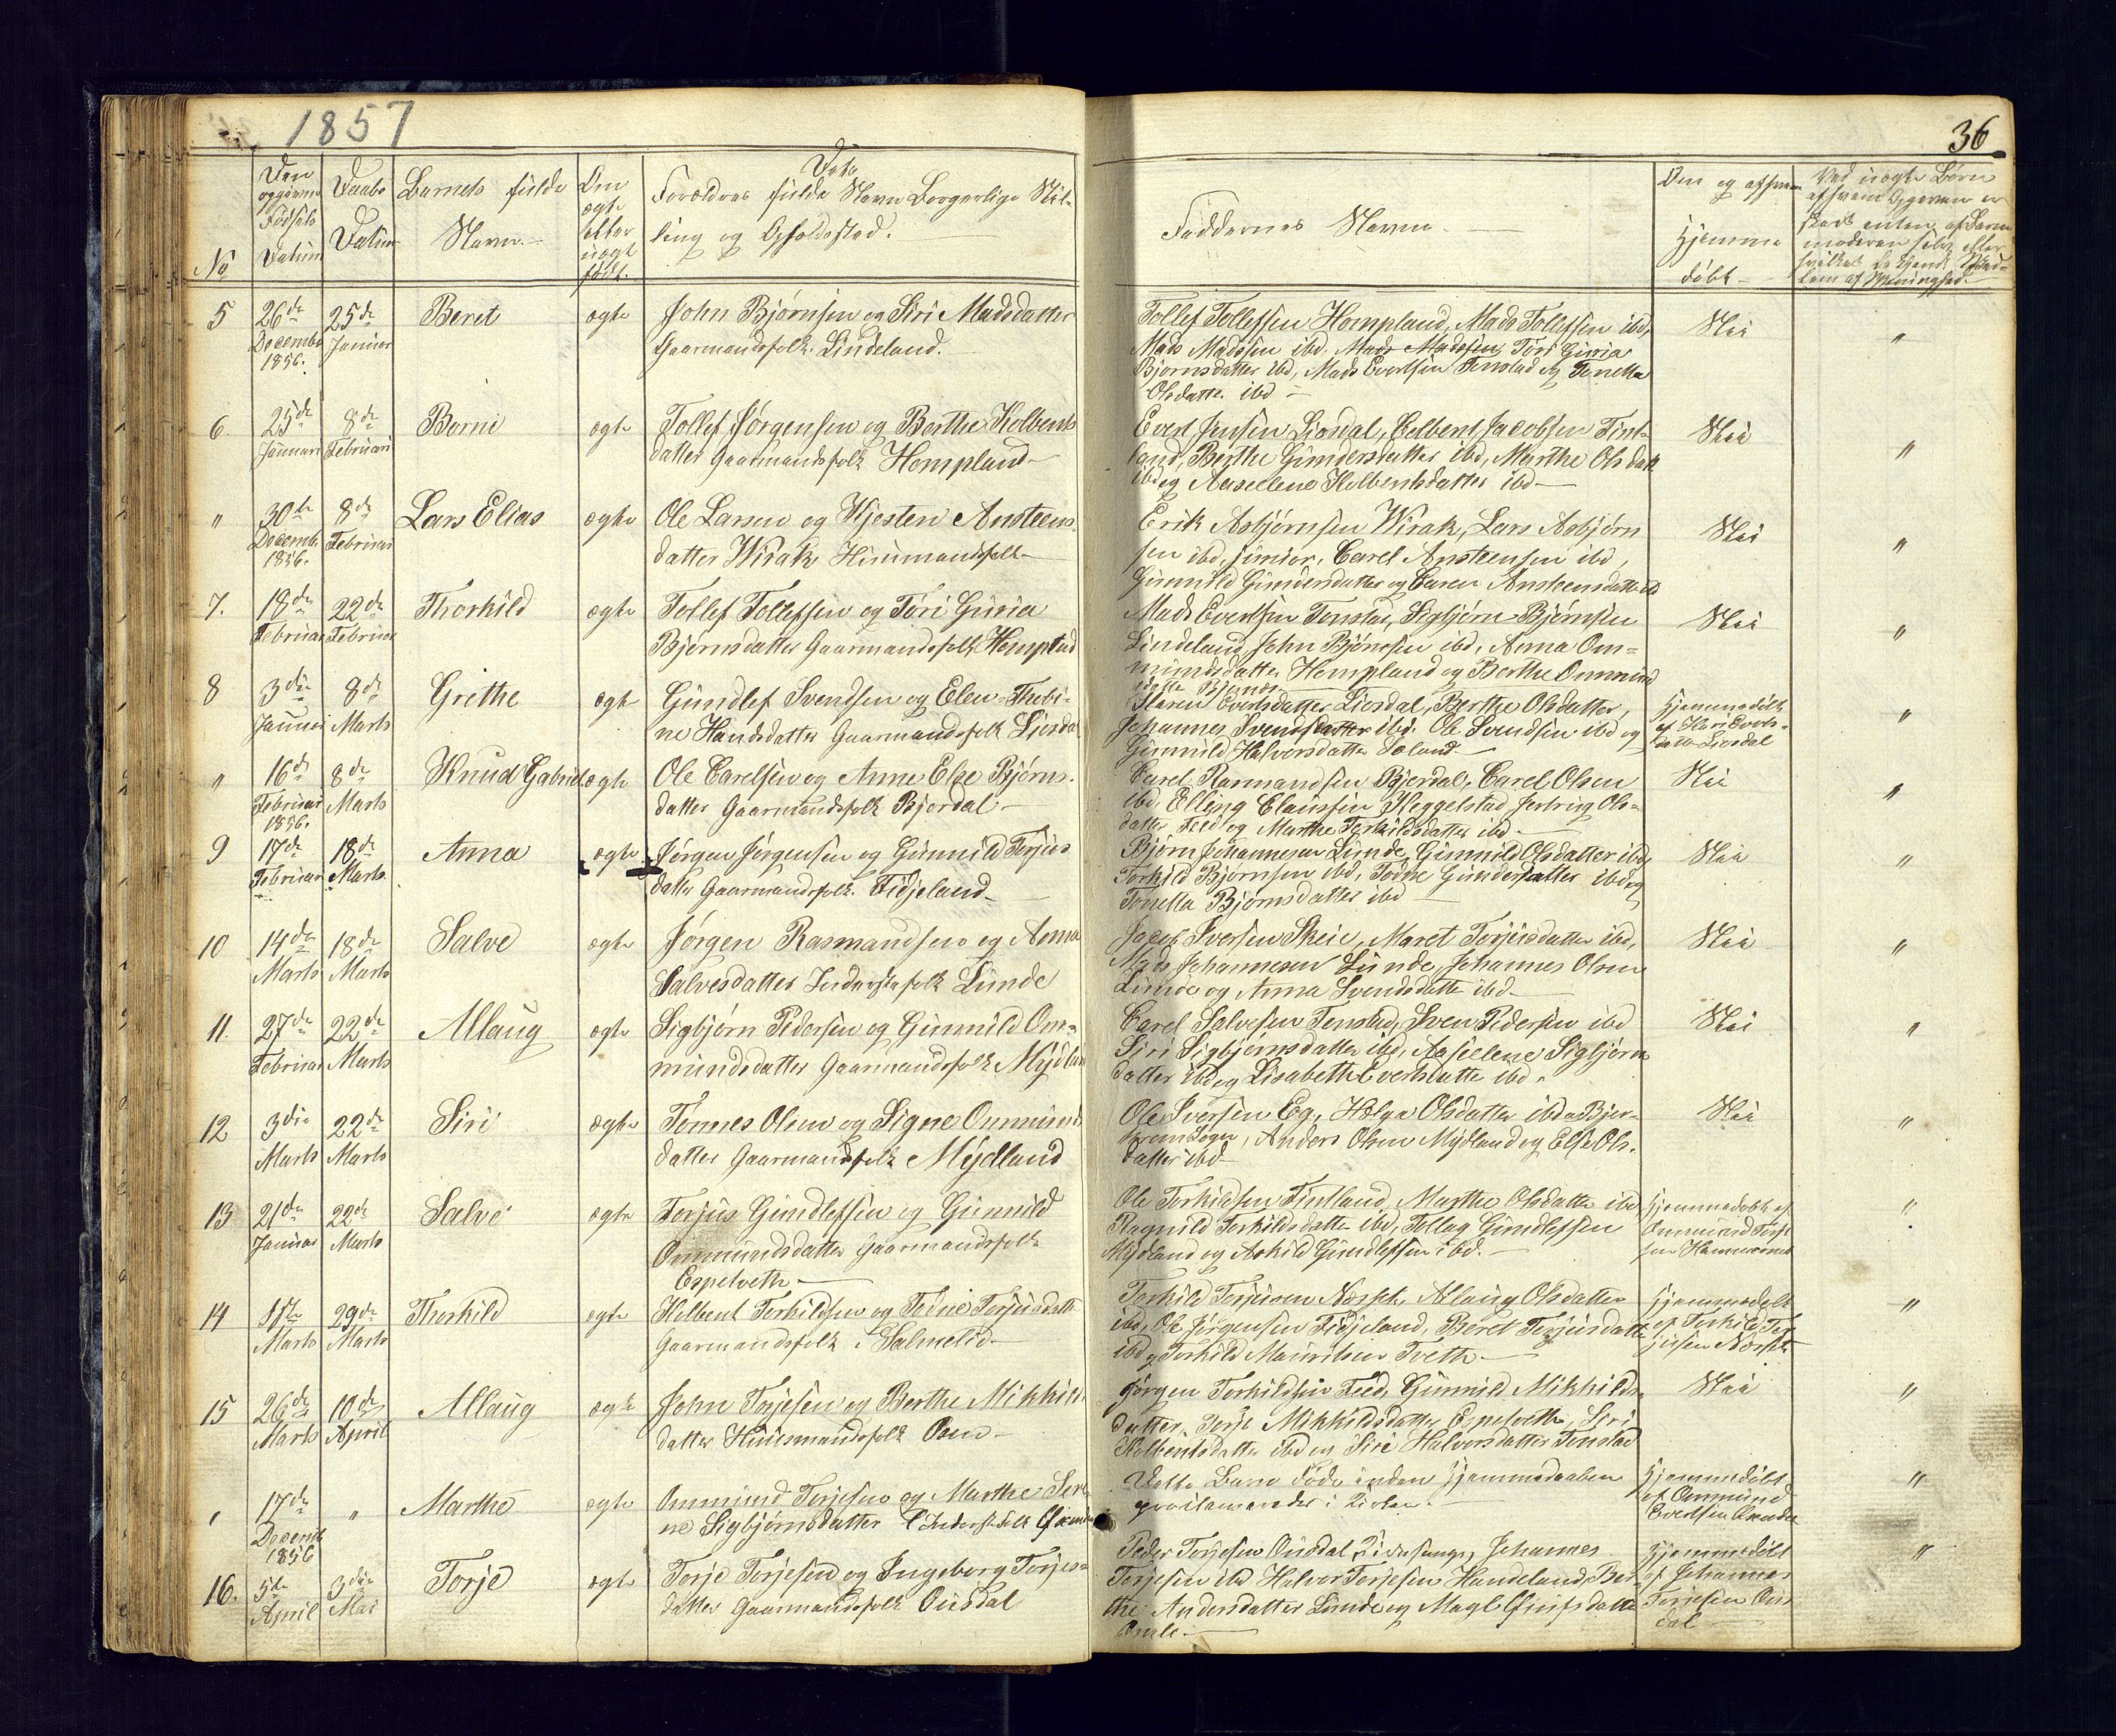 1857
36
No
Den opgivne Fødsels Datum
Daabs Datum
Barnets fulde Navn
Om ægte eller uægte født.
Forældres fulde Navn Borgerlige Stilling og Opholdssted.
Faddernes Navne.
Om og af hvem hjemme døbt
5 26de December 1856. 25de Januar Beret ægte John Bjørnsen og Siri Madsdatter
Gaarmandsfolk Lindeland.
Tollef Tollefsen Hompland, Mads Tollefsen ibd, Nei "
Mads Madssen ibd. Mads Madssen, Tori Guria
Bjørnsdatter ibd, Mads Evertsen Tonstad og Tonette
Olsdatter ibd
6. 25de Januari 8de Februari Borni ægte Tollef Jørgensen og Berthe Kolbents
datter Gaarmandsfolk Hompland
Evert Jensen Liordal, Colbent Jacobsen Fint- Nei "
land, Berthe Gundersdatter ibd, Marthe Olsdatt
ibd og Aaselene Kolbentsdatter ibd
" 30te Decemb 1856. 8de Februari Lars Elias ægte Ole Larsen og Kjesten Ansteens
datter Wirak Huusmandsfolk
Erik Asbjørnsen Wirak, Lars Asbjørn Nei "
sen ibd junior, Carel Ansteensen ibd,
Gunnild Gundersdatter og Caren Ansteensdatter ibd
7. 18de Februar 22de Februar Thorkild ægte Tollef Tollefsen og Tori Guria
Bjørnsdatter Gaarmandsfolk Hompland
Mads Evertsen Tonstad, Sigbjørn Bjørnsen Nei "
Lindeland, John Bjørnsen ibd, Anna Om-
mundsdatter Hompland og Berthe Ommund
8 3die Januar 8de Marts Grethe ægte Gundlef Svendsen og Elen
ne Hansdatter Gaarmandsfolk Liordal
Karen Evertsdatter Liordal, Berthe Olsdatter, Hjemmedøbt "
Johannes Svendsdatter ibd. Ole Svendsen ibd og af Kari Everts-
Gunnild Halversdatter datter Liordal
" 16de Februar 1856. 8de Marts Knud Gabriel ægte Ole Carelsen og Anne Else Bjørns-
datter Gaarmandsfolk Bjordal
Carel Rasmundsen Bjordal, Carel Olsen Nei "
ibd, Elling Claussen Heggelstad, Ols-
datter Feed og Marthe Torkildsdatter ibd
9 17de Februar 18de Marts Anna ægte Jørgen Jørgensen og Gunnild Torjus
datter Gaarmandsfolk Fidjeland
Bjørn Johannesen Lunde, Gunnild Olsdatter ibd, Nei "
Torkild Bjørnsen ibd, Todne Gundersdatter ibd og
Tonetta Bjørnsdatter ibd
10 14de Marts 18de Marts Salve ægte Jørgen Rasmundsen og Anna
Salvesdatter Inderstefolk Lunde
Jacob Iversen Skeie, Maret Torjusdatter ibd, Nei "
Mads Johannesen Lunde, Johannes Olsen
Lunde og Anna Svendsdatter ibd
11. 27de Februar 22de Marts Allaug ægte Sigbjørn Pedersen og Gunnild Om-
mundsdatter Gaarmandsfolk Mydland
Carel Salvesen Tonstad, Sven Pedersen ibd Nei "
Siri Sigbjørnsdatter ibd, Aaselene Sigbjørns
datter ibd og Lisabeth Evertsdatter ibd.
12 3die Marts 22de Marts Siri ægte Tønnes Olsen og Signe Ommunds
datter Gaarmandsfolk Mydland
Ole Iversen Eg, Helga Olsdatter ibd Bjer- Nei "
krem Sogn, Anders Olsen Mydland og Else Ols-
datter ibd
13 21de Januar 22de Marts Salve ægte Torjus Gundlefsen og Gunnild
Ommundsdatter Gaarmandsfolk
Espetveth
Ole Torkildsen Fintland, Marthe Olsdatter ibd Hjemmedøbt af "
Ragnild Torkildsdatter ibd, Tolleg Gundlefsen Ommund
Mydland og Askild Gundlefsen ibd. sen
14 Marts 29de Marts Thorkild ægte Kolbent Torkildsen og Todne Torjusdatter
Gaarmandsfolk Salmelid
Torkild Torjusen Næsset, Allaug Olsdatter Hjemmedøbt "
ibd, Ole Jørgensen Fidjeland, Beret Torjusdatter af Torkild Tor-
ibd og Torkild Mauritsen Tveth jusen Næsset
15 26de Marts 10de April Allaug ægte John Torjesen og Berthe Mikkils
datter Huusmandsfolk Osen
Jørgen Torkildsen Feed, Gunnild Mikkilds- Nei "
datter, Torje Mikkildsdatter Espetveth, Siri
Kolbentsdatter ibd og Siri Halversdatter Tonstad
" 17de Decemb 1856 " Marthe ægte Ommund Torjesen og Marthe Sere
ne Sigbjørnsdatter Inderstefolk
Dette Barn døde inden Hjemmedaaben Hjemmedøbt "
proclameredes i Kirken. af Ommund
Evertsen
16. 5te April 3die Mai Torje ægte Torje Torjesen og Ingeborg Torjes-
datter Gaarmandsfolk Ousdal
Peder Torjesen Ousdal, Kirkesanger, Johannes Hjemmedøbt "
Torjesen ibd Halvor Torjesen Haneland, Ber- af Johannes
the Andersdatter Lunde og Magl datter Torjesen Ous
dal